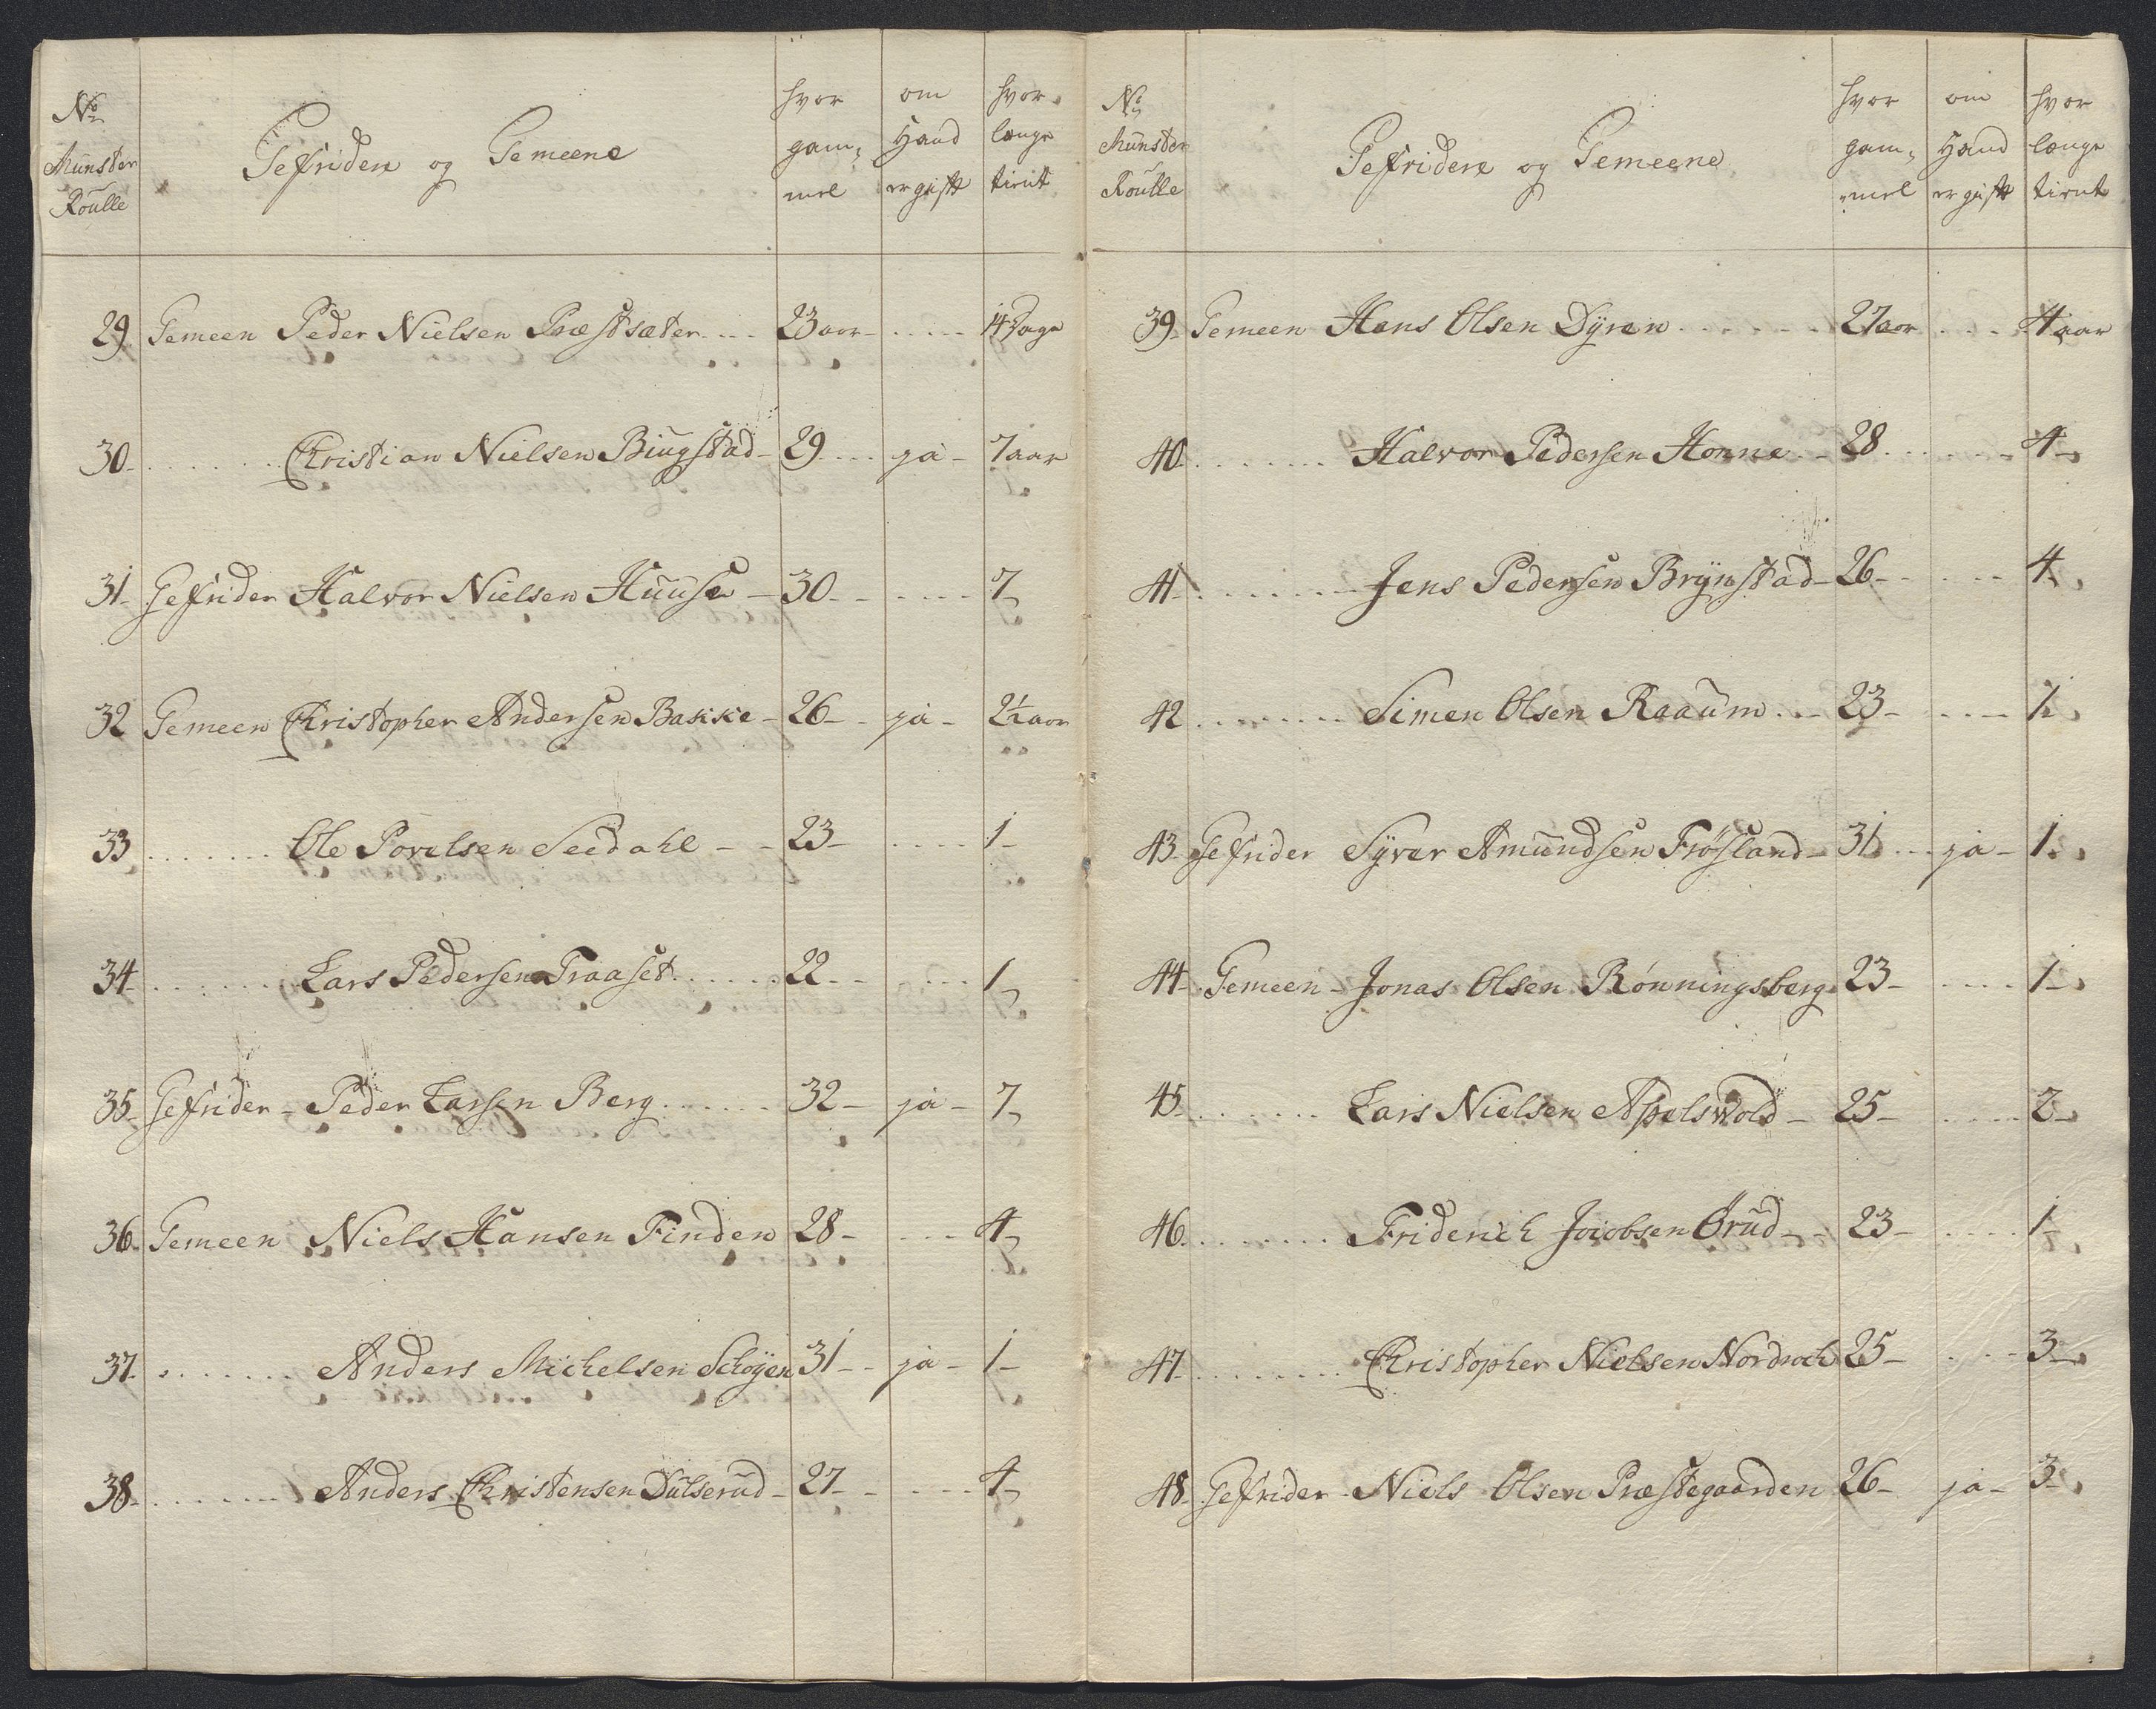 No Munster Roulle | Gefridere og Gemeene | hvor gam; mel | om Hand er gift | hvor længe tient
29. Gemeen Peder Nielsen Præstsæter.... 23 aar - ..... 14 Dage
30 - ....... Christian Nielsen Biugstad - 29 ... ja - 7 aar
31 - Gefrider Halvor Nielsen Huuse - 30 - ..... 7
32 Gemeen Christopher Andersen Bakke - 26 - ja - 2½ aar
33 ....... Ole Povelsen Seedahl - - 23 - .... 1 -
34 - ....... Lars Pedersen Traaset ...... 22 - .... 1
35 - Gefrider - Peder Larsen Berg ...... 32 - ja - 7
36 - Gemeen Niels Hansen Finden 28 - ... 4
37 - ....... Anders Michelsen Schøyen 31 - ja - 1 -
38 - ....... Anders Christensen Dulserud - 27 - .... 4
No Munster Roulle | Gefridere og Gemeene | hvor gam; mel | om Hand er gift | hvor længe tient
39 - Gemeen Hans Olsen Dyren ...... 27 aar ... 4 aar
40 - ....... Halvor Pedersen Honne - 28 ...... 4 -
41 - ....... Jens Pedersen Brynstad - 26 - .... 4
42 ....... Simen Olsen Raaum ... 23 - .... 1
43 - Gefrider Syver Amundsen Frøsland - 31 ... ja - 1
44 - Gemeen - Jonas Olsen Rønningsberg 23 - .... 1 -
45 - ....... Lars Nielsen Apelswold - 25 - .... 2 -
46 - ....... Friderich Jacobsen Ørud - 23 - .... 1 -
47 - ....... Christopher Nielsen 25 - ... 3 -
48 - Gefrider - Niels Olsen Præstegaarden 26 - ja - 3 -